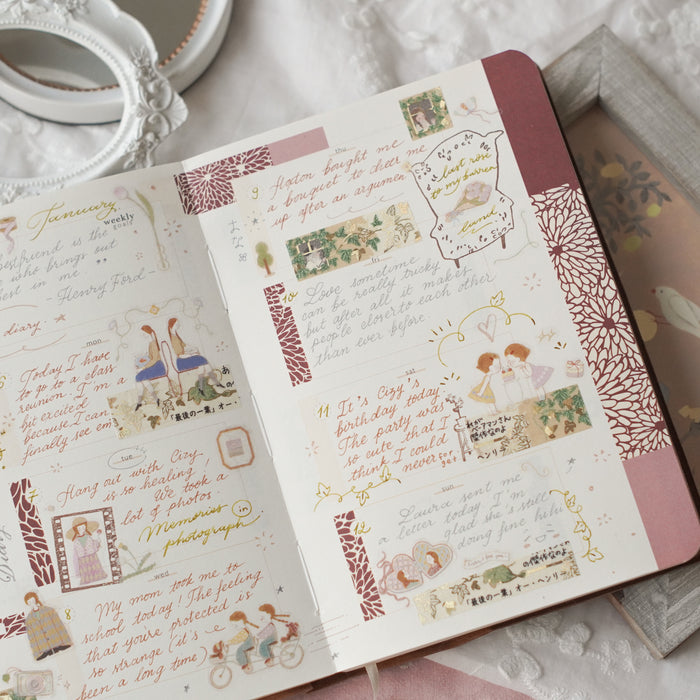 January
weekly
goals
bestfriend is the
who brings out
best in me "
- Henry Ford -
diary
mon
Today I have
to go to a class
reunion. I'm a
bit excited
because I can
finally see em
「最後の一葉」オー・
7
tue
Hang out with Cizy
is so healing!
We took a
lot of photos.
Memories in
photograph
Diary
8
wed
My mom took me to
school today! The feeling
that you're protected is
so strange (it's
been a long time)
thu
9
Hoton bought me
a bouquet to cheer me
up after an argumen
last rose
to my barren
land.
10
Love sometime
can be really tricky
but after all it makes
people closer to each other
than ever before.
sat
11
It's Cizy's
birthday today
The party was
so cute that I
think I could
never forget
傑作なのよ
ヘンリー
sun
12
Laura sent me
a letter today I'm
glad she's still
doing fine hihi
の傑作なのよ
「最後の一葉」オー・ヘンリー